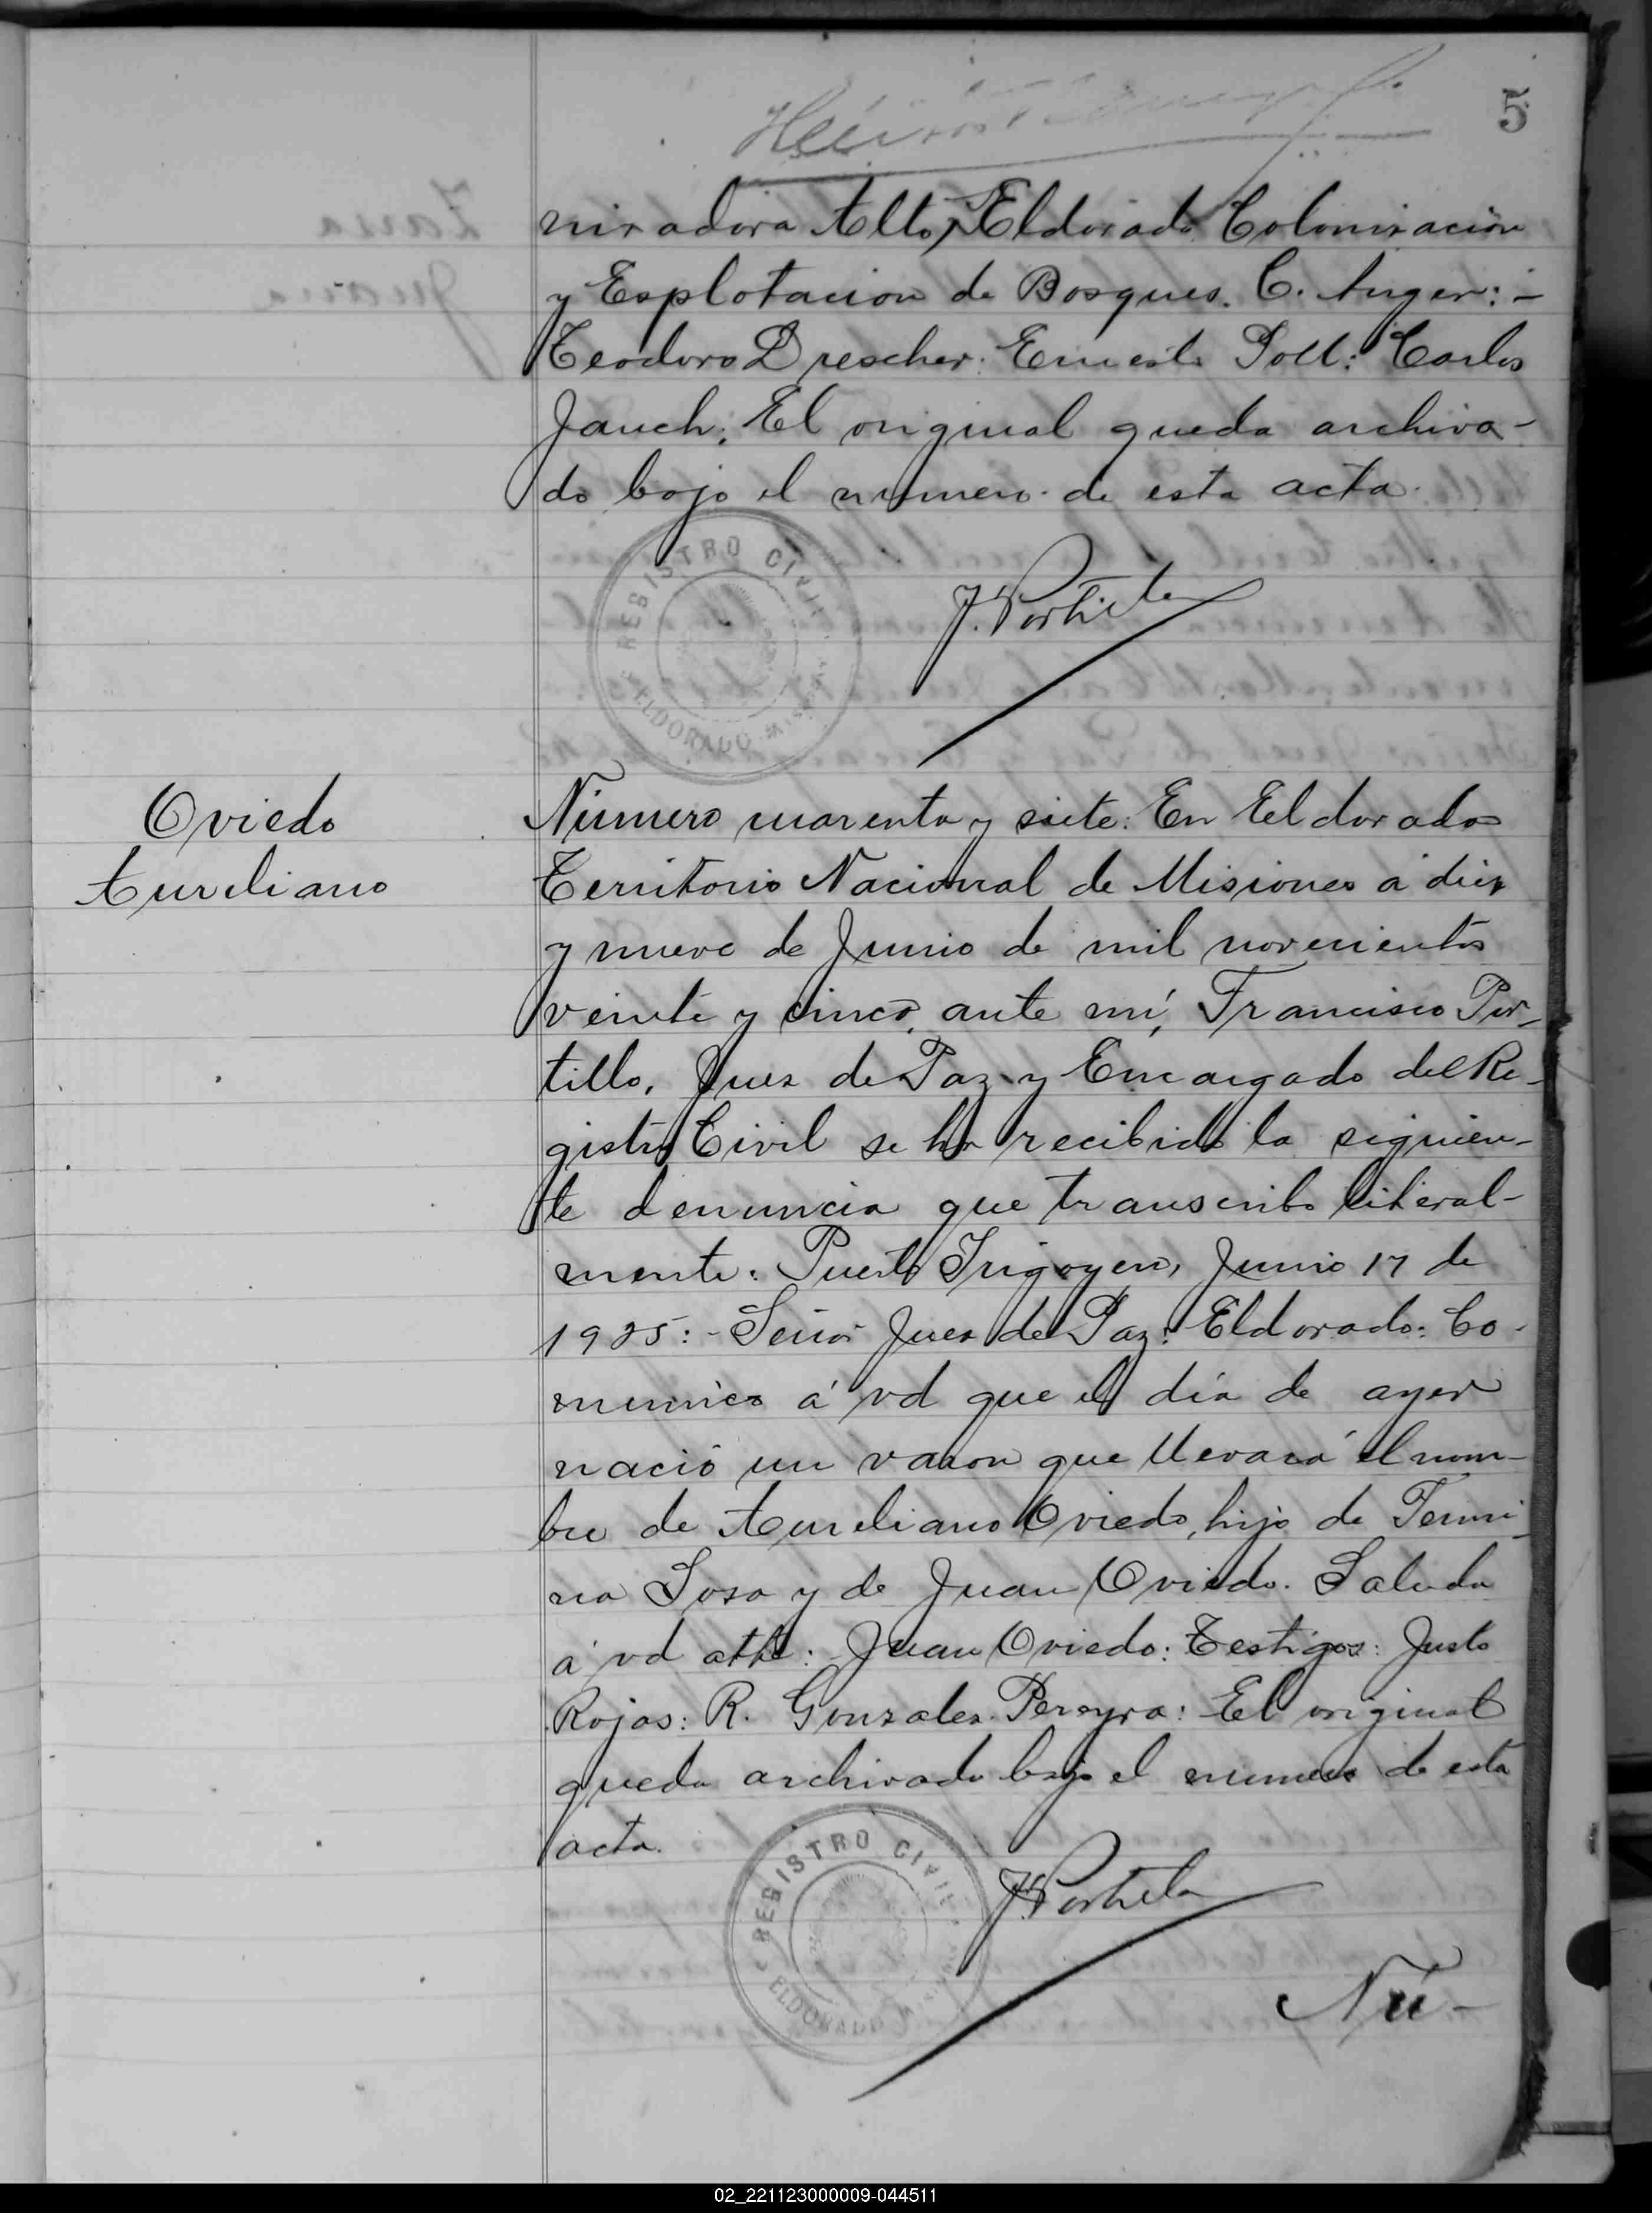 5
nizadora Alto, Eldorado Colonizacion
y Esplotacion de Bosques. C. Anger: -
Teodoro Drescher: Ernesto Poll: Carlos
Jauch: El original queda archiva-
do bajo el numero de esta acta.
REGISTRO CIVIL
ELDORADO MISIONES
F. Portillo
Oviedo
Aureliano
Número cuarenta y siete: En Eldorado
Territorio Nacional de Misiones á diez
y nueve de Junio de mil novecientos
veinte y cinco, ante mí, Francisco Por-
tillo, Juez de Paz y Encargado del Re-
gistro Civil se ha recibido la siguien-
te denuncia que transcribo literal-
mente: Puerto Irigoyen, Junio 17 de
1925: - Señor Juez de Paz: Eldorado: Co-
munico á vd que el día de ayer
nació un varon que llevará el nom-
bre de Aureliano Oviedo, hijo de Fermi-
na Sosa y de Juan Oviedo. Saluda
á vd atte: Juan Oviedo: Testigos: Justo
Rojas: R. Gonzales Pereyra: El original
queda archivado bajo el numero de esta
acta.
REGISTRO CIVIL
ELDORADO MISIONES
F. Portillo
Nú-
02_221123000009-044511